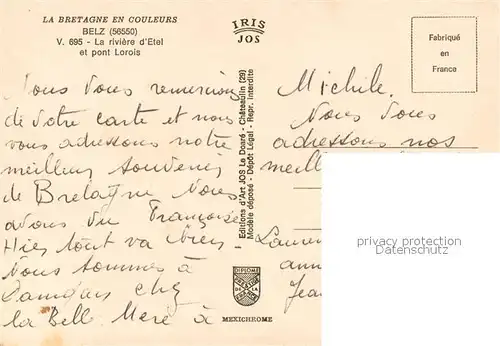 LA BRETAGNE EN COULEURS
BELZ (56550)
V. 695 - La rivière d'Etel
et pont Lorois
IRIS
JOS
Fabriqué
en
France
Nous vous remercions
de votre carte et nous
vous adressons notre
meilleur souvenir
de Bretagne Nous
avons vu Françoise
Hier tout va bien
Nous sommes à
Damgan chez
la Bell Mere à
Editions d'Art JOS Le Doaré - Châteaulin (29)
Modèle déposé - Dépôt Légal - Repr. interdite
DIPLOME
MEXICHROME
Michile.
Nous vous
adressons nos
meill
Lauren
ann
Jean
privacy protection
Datenschutz